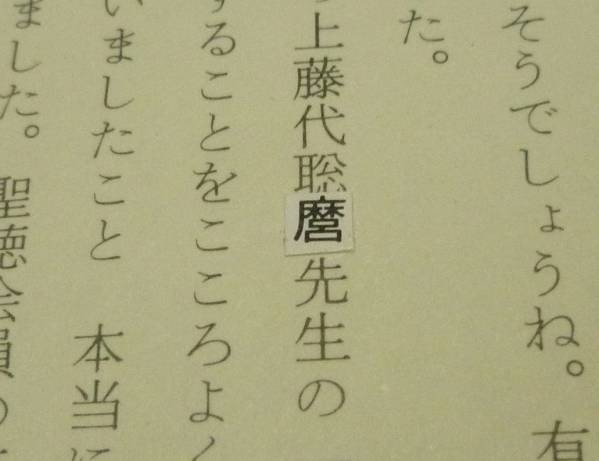 そうでしょうね。有
た。
上藤代聡麿先生の
することをこころよく
いましたこと　本当に
ました。　聖徳会員の